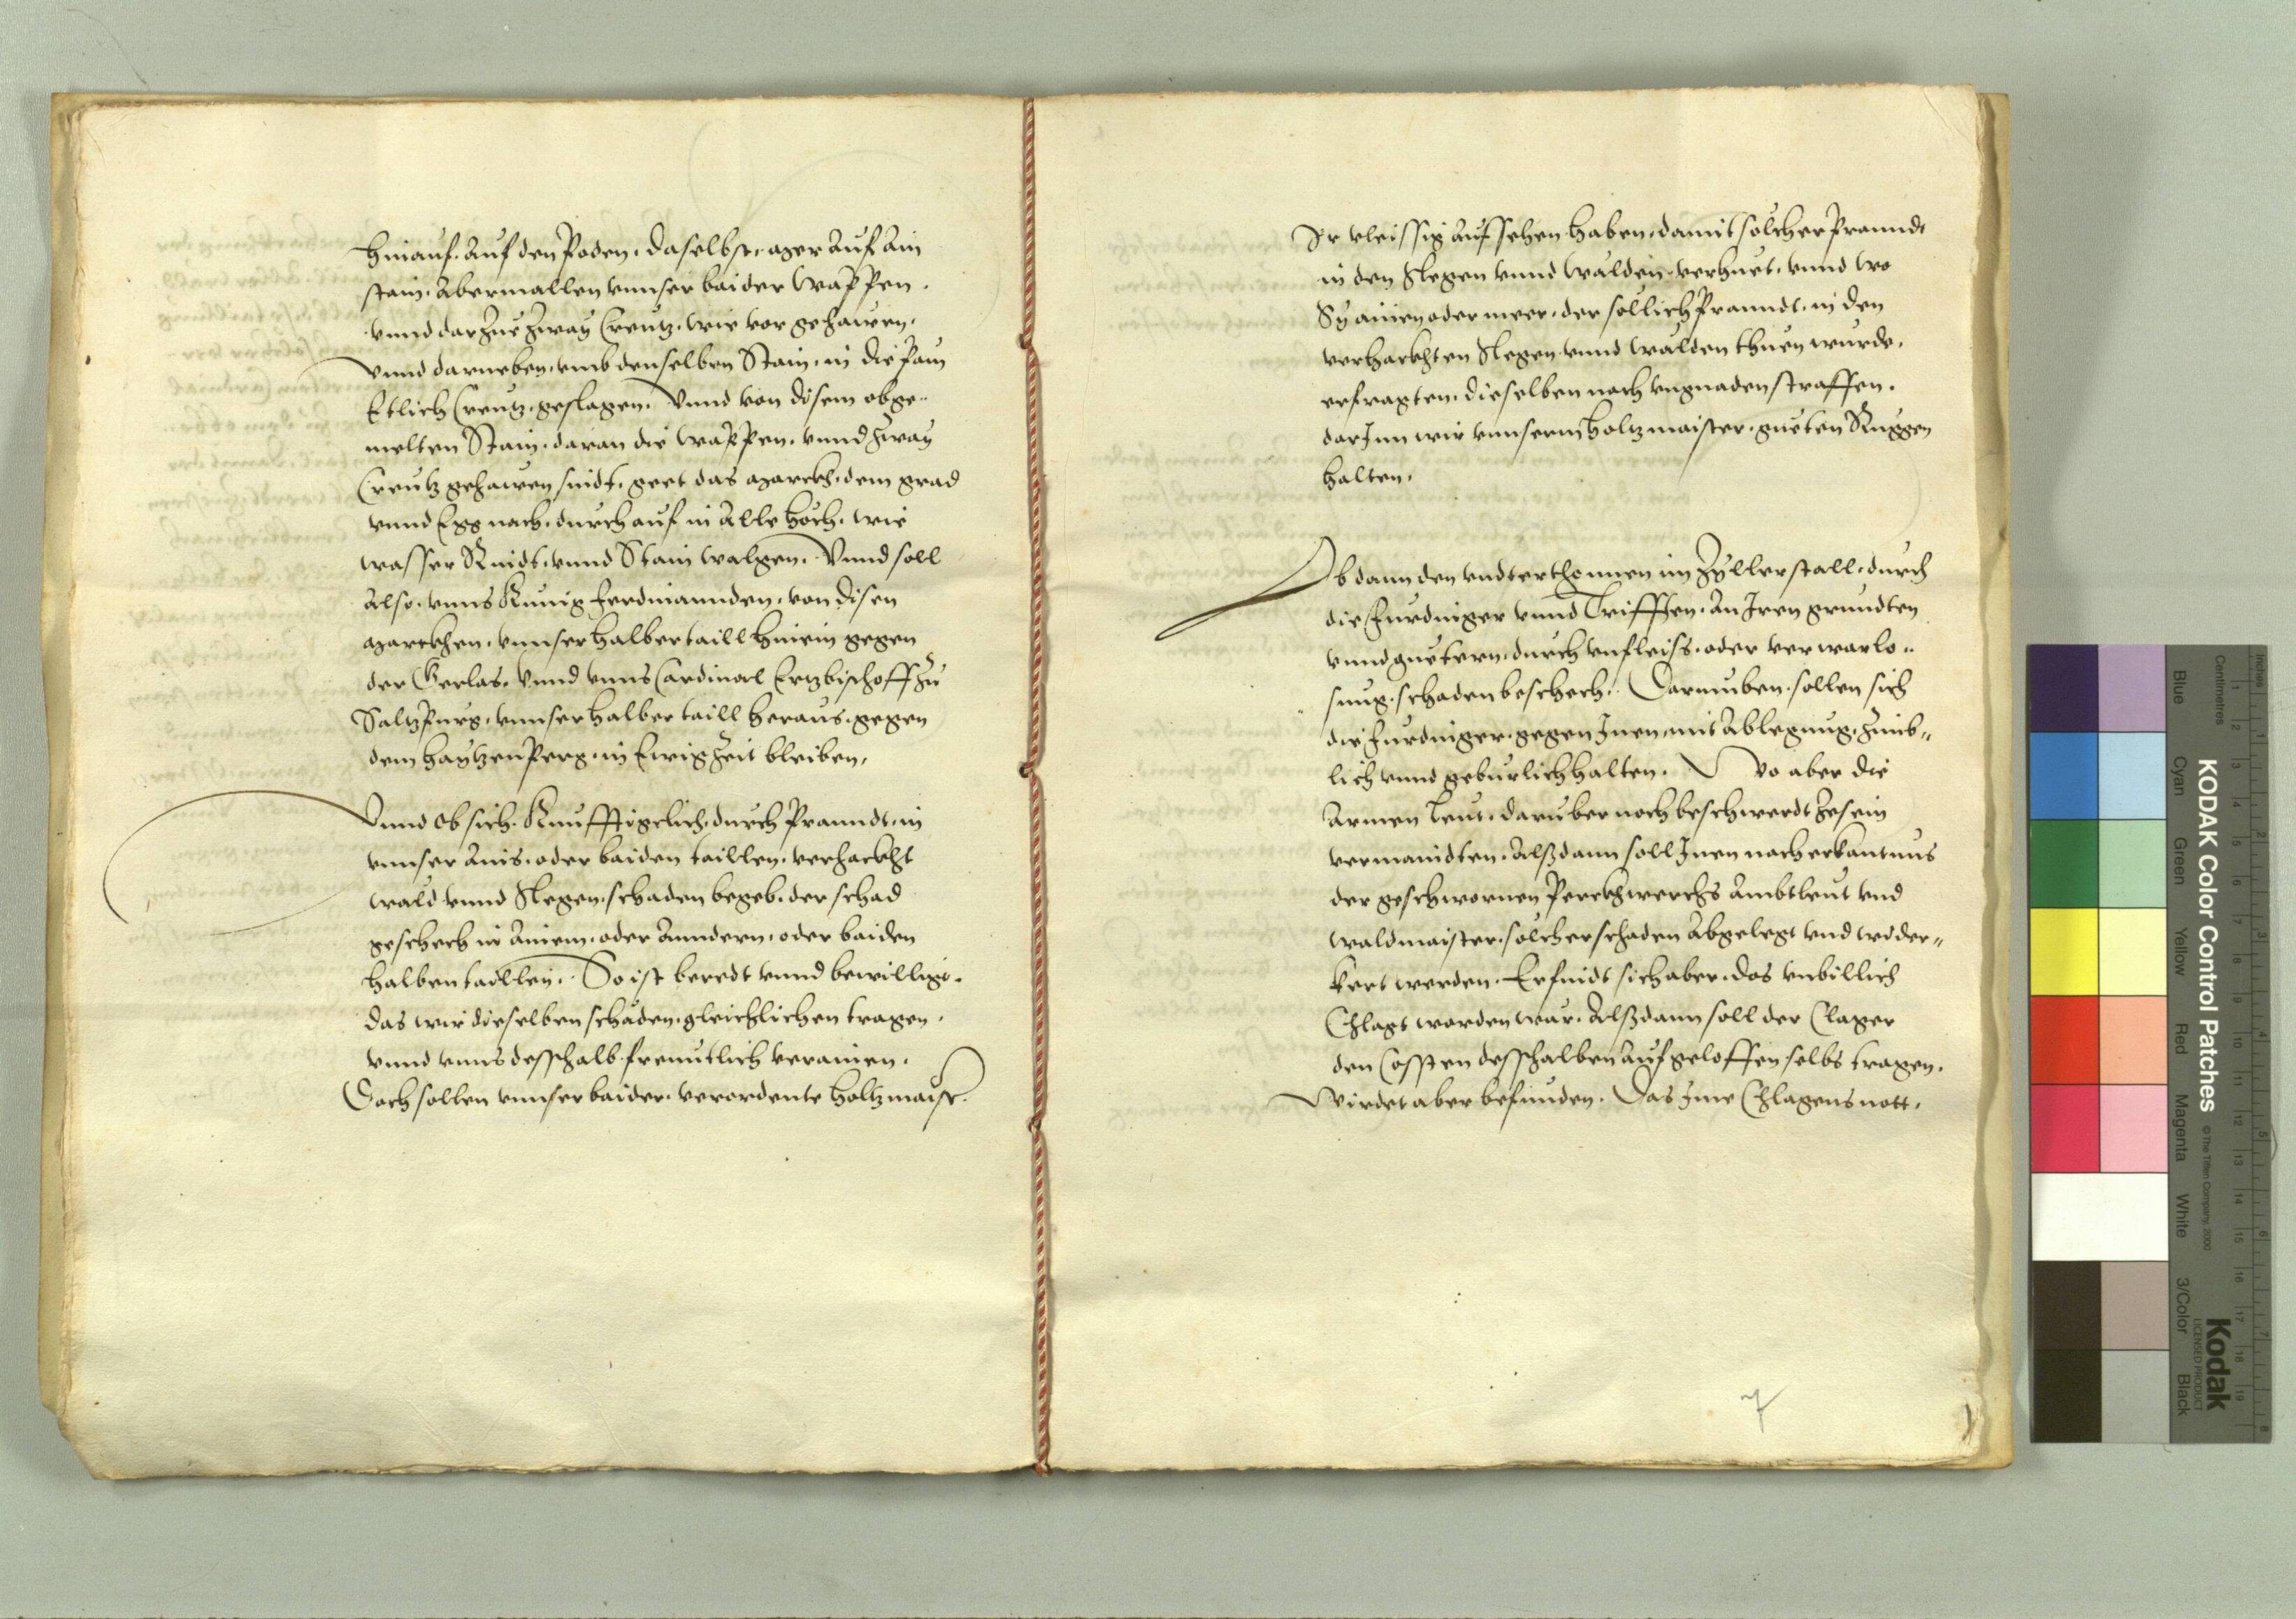 hinauf. Auf den Poden. daselbst. aber auf ain
stain. abermallen vnnser baider Wappen.
vnnd darzue zway Creutz. wie vor gehawen.
vnnd darneben. vmb denselben Stain. in die Paum
Etlich Creutz. geslagen. Vnnd von disem obge-
melten Stain. daran die Wappen. vnnd zway
Creutz gehawen sindt. geet das march. dem grad
vnnd Egg nach. durchauf in alle höch. wie
wasser Rindt. vnnd Stain walgen. Vnnd soll
also. vnns Kunig Ferdinannden. von disen
marchen. vnnser halber taill hinein gegen
der Gerlas. Vnnd vnns Cardinal Ertzbischoff zu
Saltzpurg. vnnser halber taill heraus. gegen
dem Haytzenperg. in Ewigzeit bleiben.
Vnnd ob sich. Kunfftigclich. durch Pranndt. in
vnnser ains. oder baiden taillen. verhackht
wäld vnnd Slegen. schaden begeb. der schad
geschech in ainem. oder anndern. oder baiden
halben taillen. So ist beredt vnnd bewilligt.
das wir dieselben schäden. gleichlichen tragen.
vnnd vnns desshalb freuntlich verainen.
Doch sollen vnnser baider. verordente holtzmaist.
Ir vleissig aufsehen haben. damit solcher Pranndt
in den Slegen vnnd wälden verhuet. vnnd wo
Sy ainen oder meer. der sollich Pranndt. in den
verhackhten Slegen vnnd wälden thuen wurde.
erfragten. dieselben nach vngnaden straffen.
darInn wir vnnserm holtzmaister. gueten Ruggen
halten.
Ob dann den vndterthonnen im Zyllerstall. durch
die Furdniger vnnd Trifften. an Iren grundten
vnnd guetern. durch vnfleiss. oder verwarlo-
sung. schaden beschech. Darumben. sollen sich
die Furdniger. gegen Inen. mit ablegung. zimb-
lich vnnd geburlich halten. Wo aber die
Armen Leut. daruber noch beschwerdt zesein
vermaindten. Alßdann soll Inen nach erkantnus
der geschwornen Perckhwerchs Ambtleut vnd
waldmaister. solcher schaden abgelegt vnd wider-
kert werden. Erfindt sich aber. das vnbillich
Chlagt worden wär. Alßdann soll der Clager
den Cossten desshalben aufgeloffen selbs tragen.
Wirdet aber befunden. Das Ime Chlagens nott.
7
KODAK Color Control Patches
© The Tiffen Company, 2000
Kodak
LICENSED PRODUCT
Inches
Centimetres
Blue Cyan Green Yellow Red Magenta White 3/Color Black